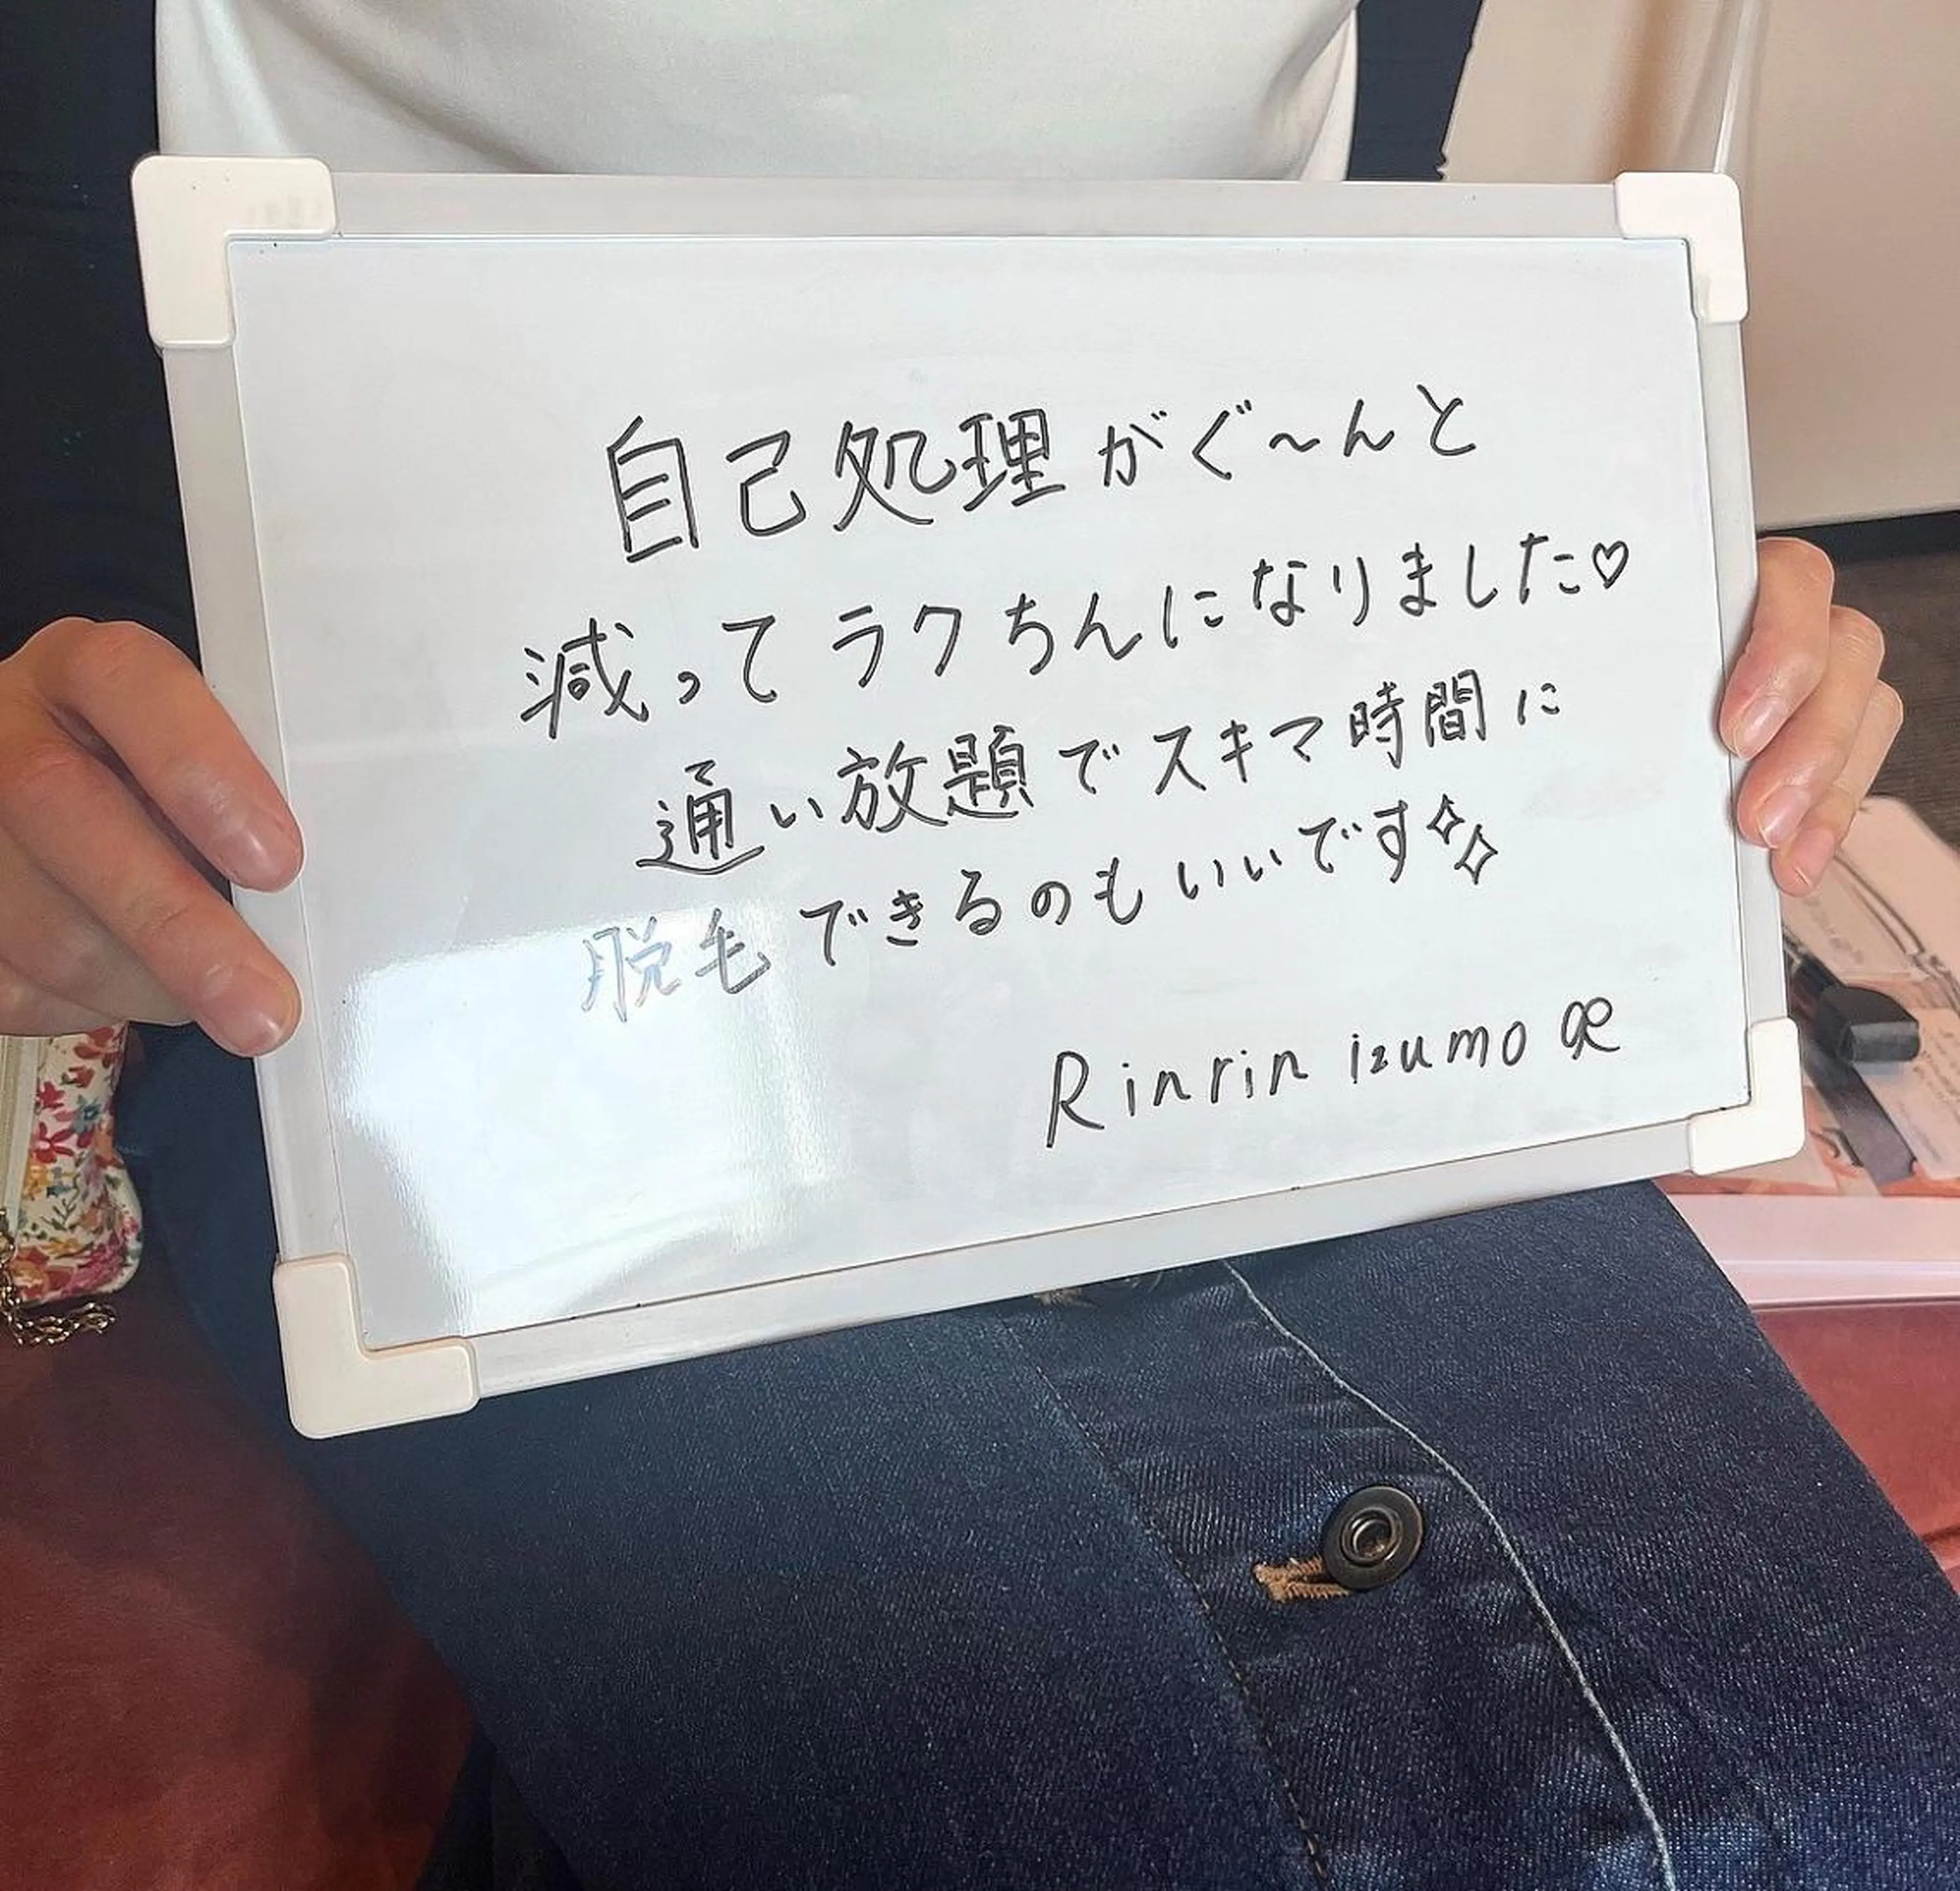 自己処理がぐ〜んと
減ってラクちんになりました♡
通い放題でスキマ時間に
脱毛できるのもいいです✨
Rinrin izumo